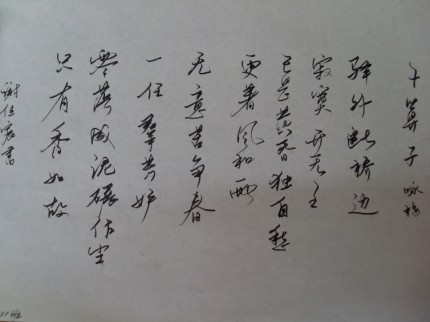 卜算子 咏梅
驿外断桥边
寂寞开无主
已是黄昏独自愁
更着风和雨
无意苦争春
一任群芳妒
零落成泥碾作尘
只有香如故
谢 書